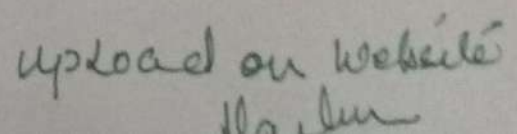 upload on website